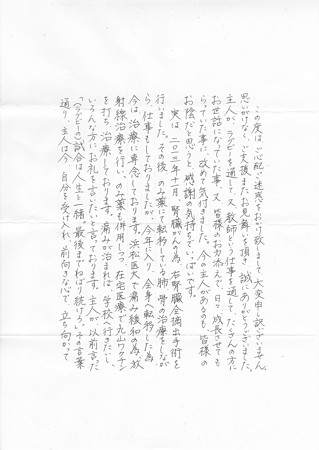 この度は ご心配、ご迷惑をおかけ致しまして 大変申し訳ございません。
思いがけなく、ご支援またお見舞いを頂き 誠にありがとうございました。
主人が、ラグビーを通して、又 教師という仕事を通して、たくさんの方に
お世話になっていた事、又 皆様のお力添えで、日々 成長させても
らっていた事に、改めて気付きました。今の主人があるのも、皆様の
お陰だと思うと、感謝の気持ちでいっぱいです。
実は、二〇一三年十一月 腎臓がんの為、右腎臓全摘出手術を
行いました。その後、のみ薬にて転移している肺、骨の治療をしなが
ら、仕事もしておりましたが、今年に入り、全身へ転移した為、
今は 治療に専念しております。浜松医大で痛み緩和の為、放
射線治療を行い、のみ薬も併用しつつ、在宅医療で丸山ワクチン
を打ち 治療しております。痛みが治まれば 学校へ行きたいし、
いろんな方にお礼を言いたいと言っております。主人が以前言った
「(ラグビーの)試合は人生と一緒、最後までねばり続けろ」その言葉
通り、主人は今 自分を受け入れ、前向きな心で、立ち向かって